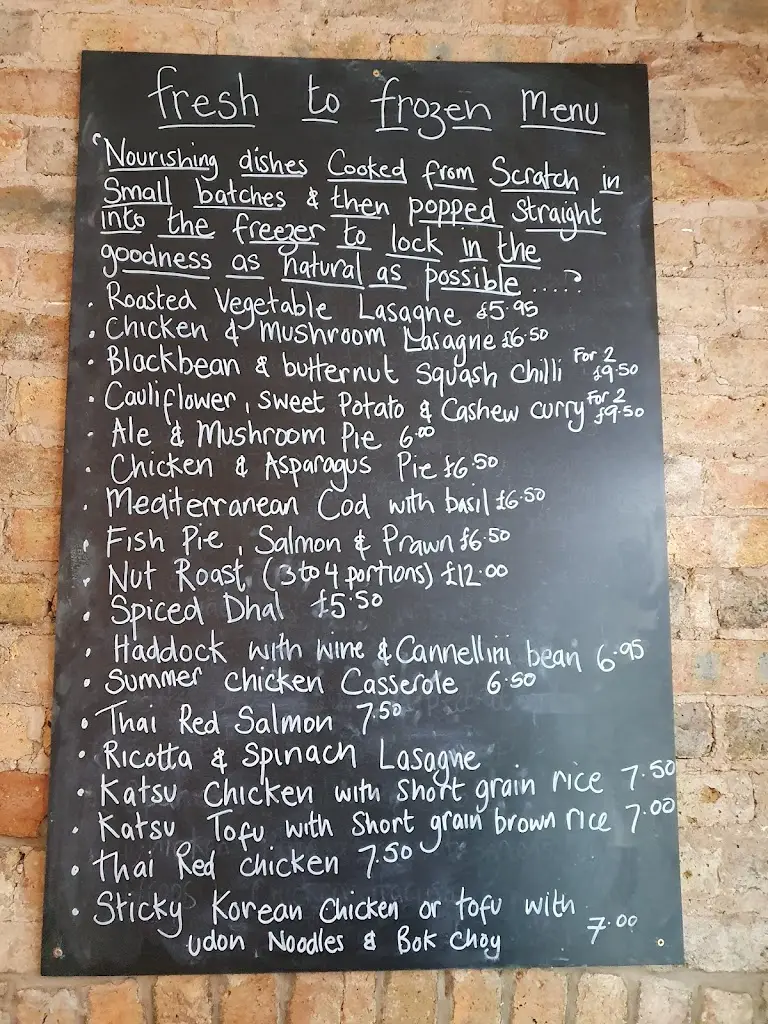 fresh to frozen Menu
"Nourishing dishes Cooked from Scratch in
Small batches & then popped Straight
into the freezer to lock in the
goodness as natural as possible .....?
• Roasted Vegetable Lasagne £5.95
• Chicken & Mushroom Lasagne £6.50
• Blackbean & butternut Squash Chilli For 2 £9.50
• Cauliflower, Sweet Potato & Cashew curry For 2 £9.50
• Ale & Mushroom Pie 6.00
• Chicken & Asparagus Pie £6.50
• Mediterranean Cod with basil £6.50
• Fish Pie, Salmon & Prawn £6.50
• Nut Roast (3 to 4 portions) £12.00
• Spiced Dhal £5.50
• Haddock with wine & Cannellini bean 6.95
• Summer chicken Casserole 6.50
• Thai Red Salmon 7.50
• Ricotta & Spinach Lasagne
• Katsu Chicken with Short grain rice 7.50
• Katsu Tofu with Short grain brown rice 7.00
• Thai Red chicken 7.50
• Sticky Korean Chicken or tofu with
udon Noodles & Bok Choy 7.00